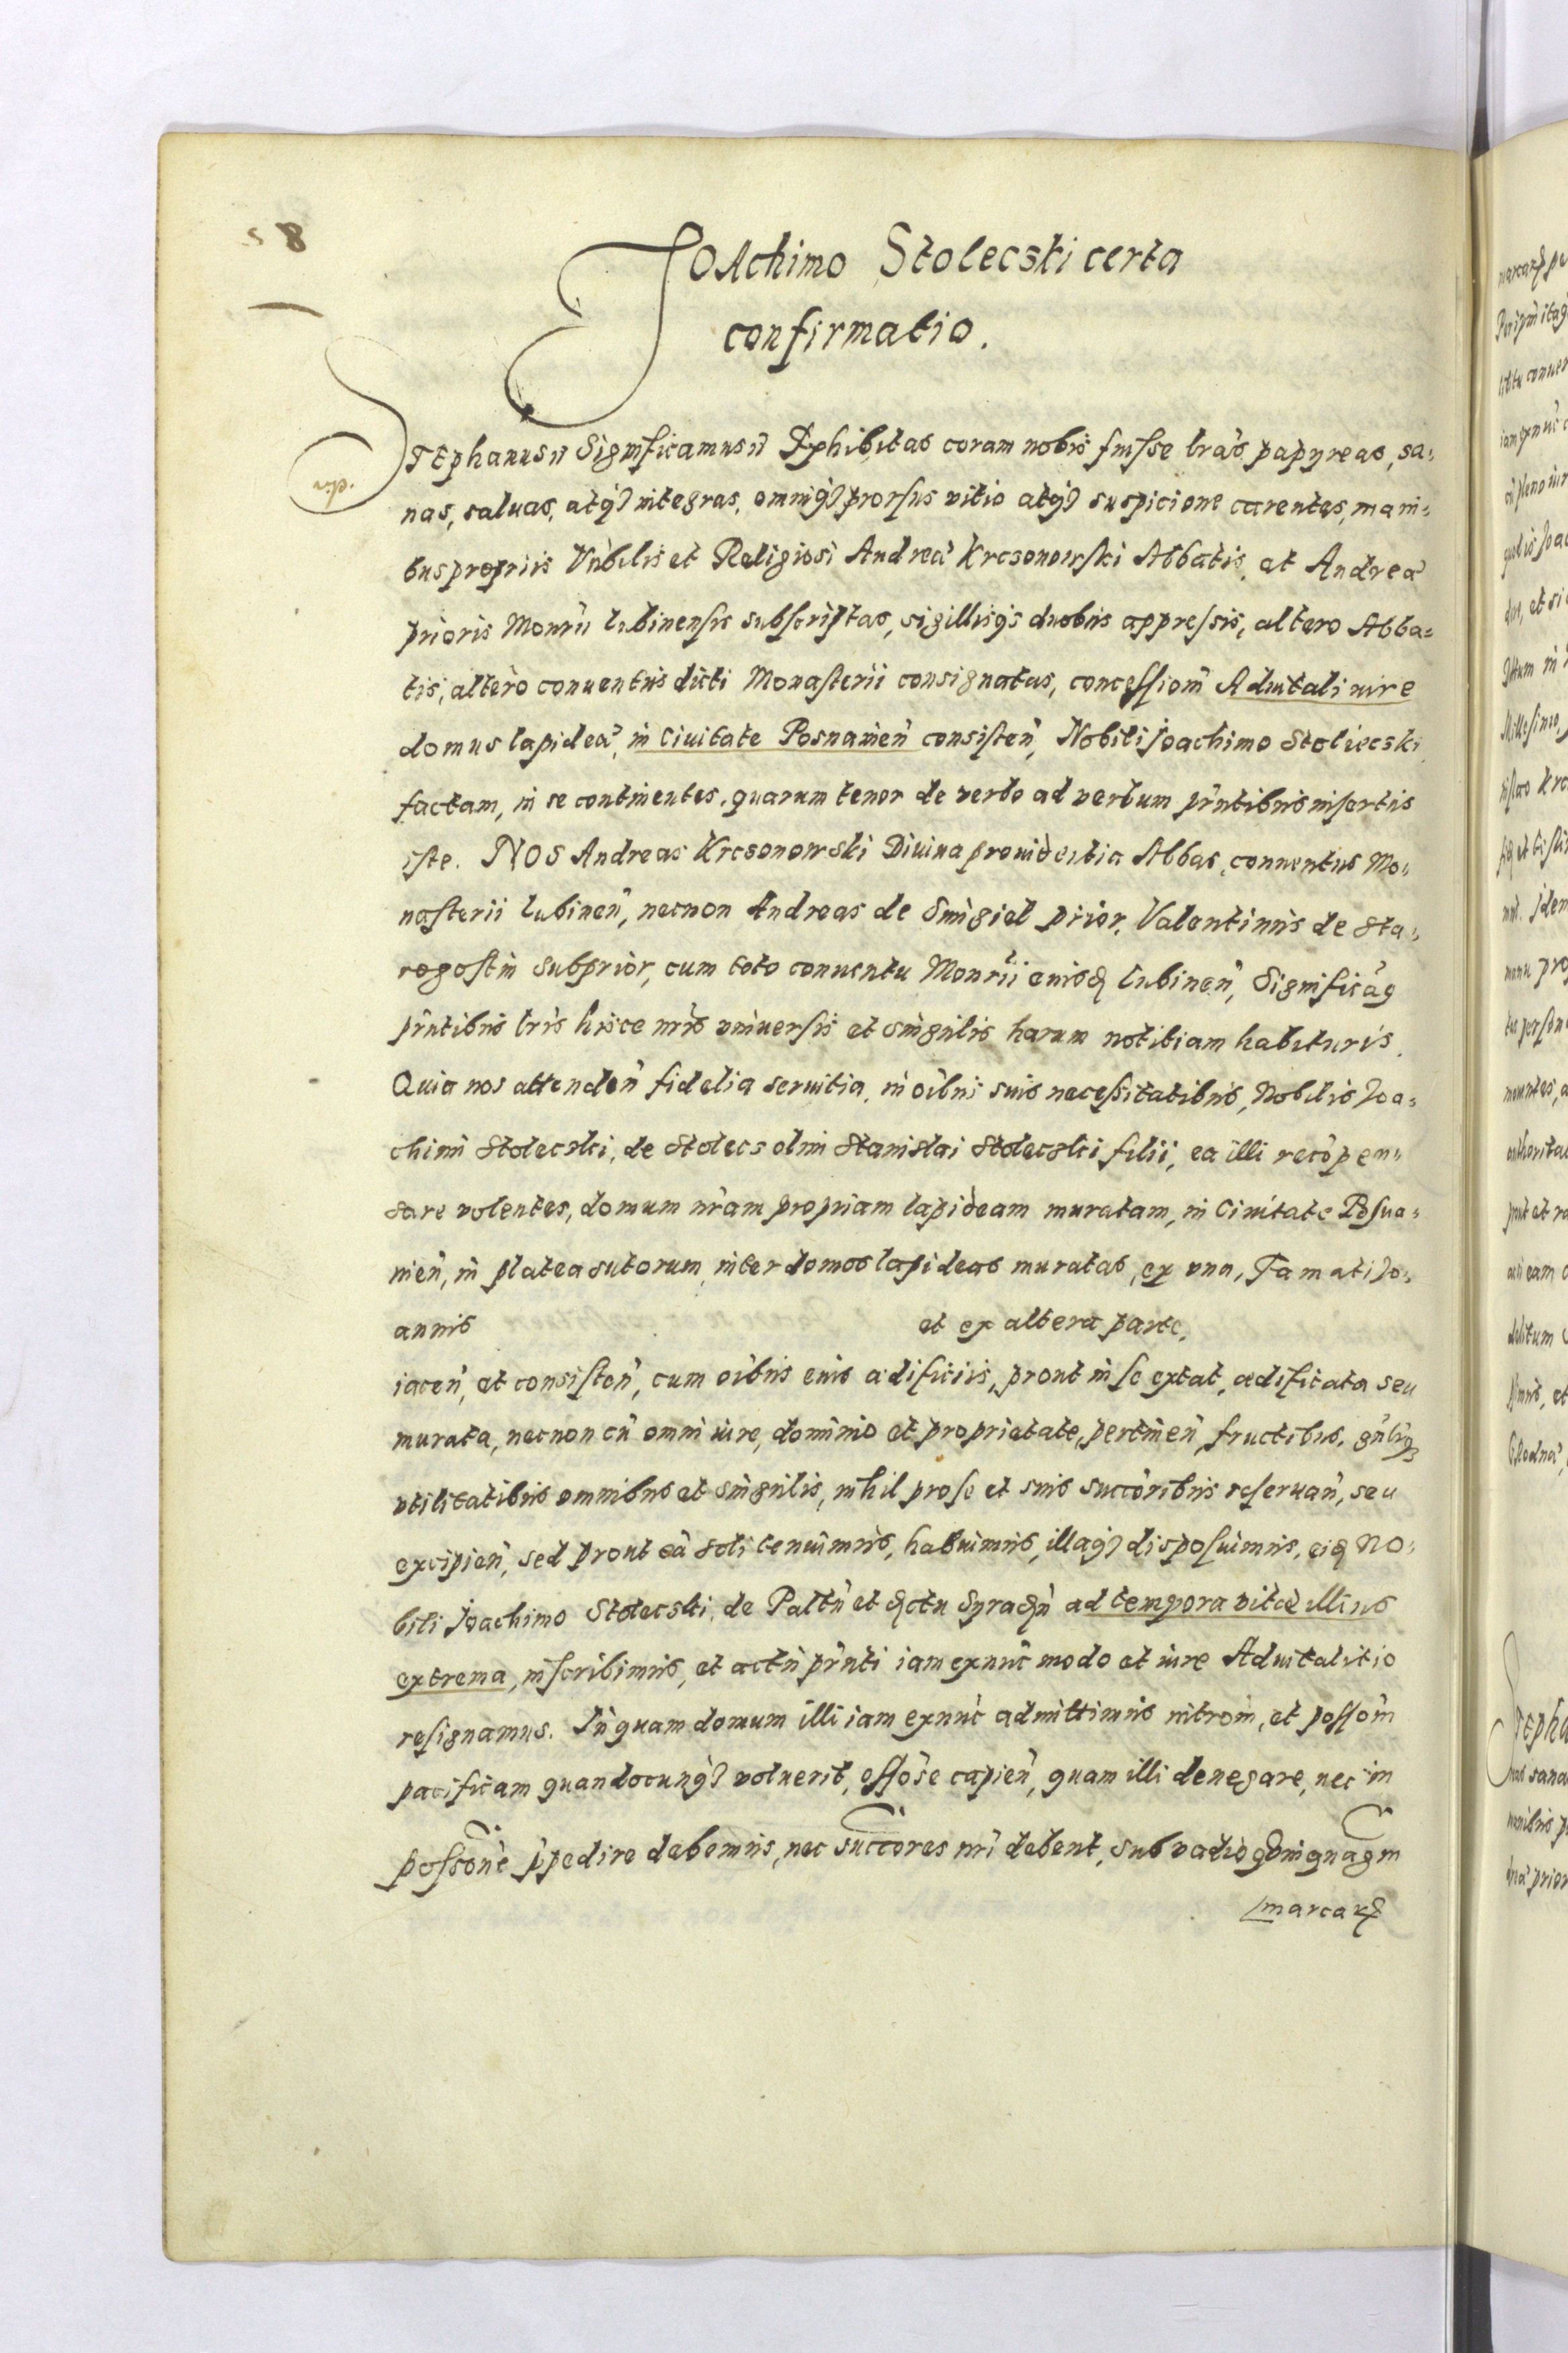 58
JOAchimo Stolecski certa
confirmatio.
STEphanus etc Significamus etc Exhibitas coram nobis fuisse lrás papyreas, sa-
nas, saluas, atq integras, omniq prorsus vitio atq suspicione carentes, mani-
bus propriis Vnbilis et Religiosi Andreæ Krcsonowski Abbatis, et Andreæ
prioris Monrii lubinensis subscriptas, sigillisqs duobus appressis, altero Abba-
tis, altero conuentus dicti Monasterii consignatas, concessiom Aduitali iure
domus lapideæ, in Ciuitate Posnanien consisten, Nobili Joachimo Stoliecski
factam, in se continentes, quarum tenor de verbo ad verbum pntibus insertis
iste. NOS Andreas Krcsonowski Diuina prouidentia Abbas, conuentus Mo-
nasterii lubinen, necnon Andreas de Smigiel prior, Valentinus de Sta-
rogostin subprior, cum toto conuentu Monrii eiusd lubinen, Significaq
pntibus lris hisce nris vniuersis et singulis harum notitiam habituris.
Quia nos attenden fidelia seruitia, in oibus suis necessitatibus, Nobilis Joa-
chimi Stolecski, de Stolecs olim Stanislai Stolecski filii, ea illi recopen-
sare volentes, domum nram propriam lapideam muratam, in Ciuitate Posna-
nien, in platea sutorum, inter domos lapideas muratas, ex vna, Famati Jo-
annis et ex altera parte,
iacen, et consisten, cum oibus eius ædificiis, prout in se extat, ædificata seu
murata, necnon cu omni iure, dominio et proprietate, pertinen, fructibus, gnliq
vtilitatibus omnibus et singulis, nihil pro se et suis succoribus reseruan, seu
excipien, sed prout ea soli tenuimus, habuimus, illaq disposuimus, eid No-
bili Joachimo Stolecski, ad tempora vitæ illius
extrema, inscribimus, et actu pnti iam exnunc modo et iure Aduitalitio
resignamus. In quam domum illi iam exnunc admittimus introm, et possom
pacificam quandocunq voluerit, capien, quam illi denegare, nec in
possone ppedire debemus, nec succores nri debent, sub vadio
marcar